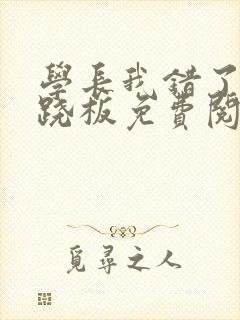 學長我錯了
跷板免費閱
覓尋之人